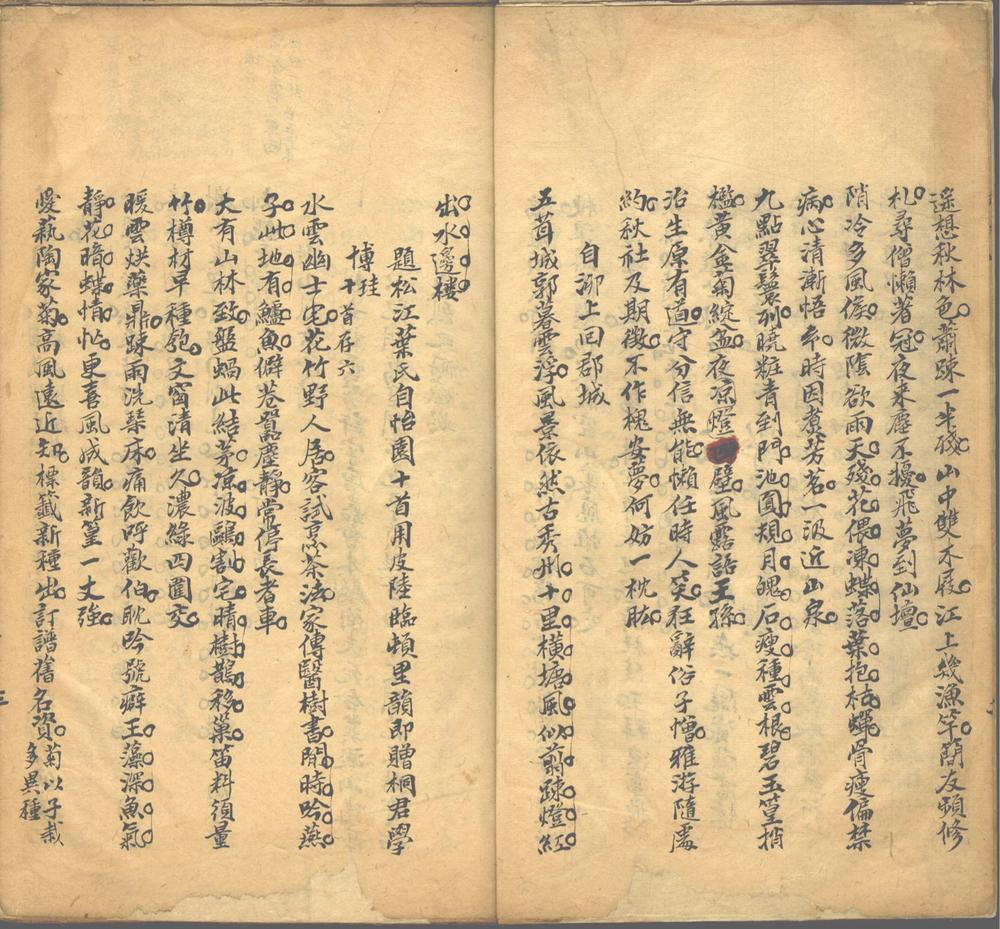 遥想秋林色蕭踈一半殘山中雙不屐江上幾漁竿簡友頻修
札尋僧懶著冠夜来塵不擾飛夢到仙壇
陗冷多風候微陰欲雨天殘花偎凍蝶落葉抱枯蟬骨瘦偏禁
病心清漸悟禾時因煮芳茗一汲近山泉
九點翠鬟列曉粧青到門池圓規月魄石瘦種雲根碧玉篁捎
檻黄金菊綻盆夜凉燈四壁風露話王孫
治生原有道守分信無能懶任時人笑狂辭俗子憎雅游隨處
約秋社及期徴不作槐安夢何妨一枕肱
自泖上回郡城
五茸城郭暮雲浮風景依然古秀州十里横塘風似剪踈燈紅
出水邊楼
題松江葉氏自怡園十首用皮陸臨頓里韻即贈桐君學
博珪十首存六
水雲幽士宅花竹野人居客試烹茶法家傳醫樹書閒時吟燕
子此地有鱸魚僻巷囂塵静常停長者車
大有山林致盤蝸此結茅凉波鷗割宅晴樹鵲移巢笛料須量
竹樽材早種匏文窗清坐久濃緑四圍交
暖雲烘藥鼎踈雨洗琴床痛飲呼歡伯耽吟號癖王藻深魚氣
静花暗蝶情忙更喜風成韻新篁一丈強
愛蓺陶家菊高風遠近知標籤新種出訂譜舊名資菊以子栽多異種